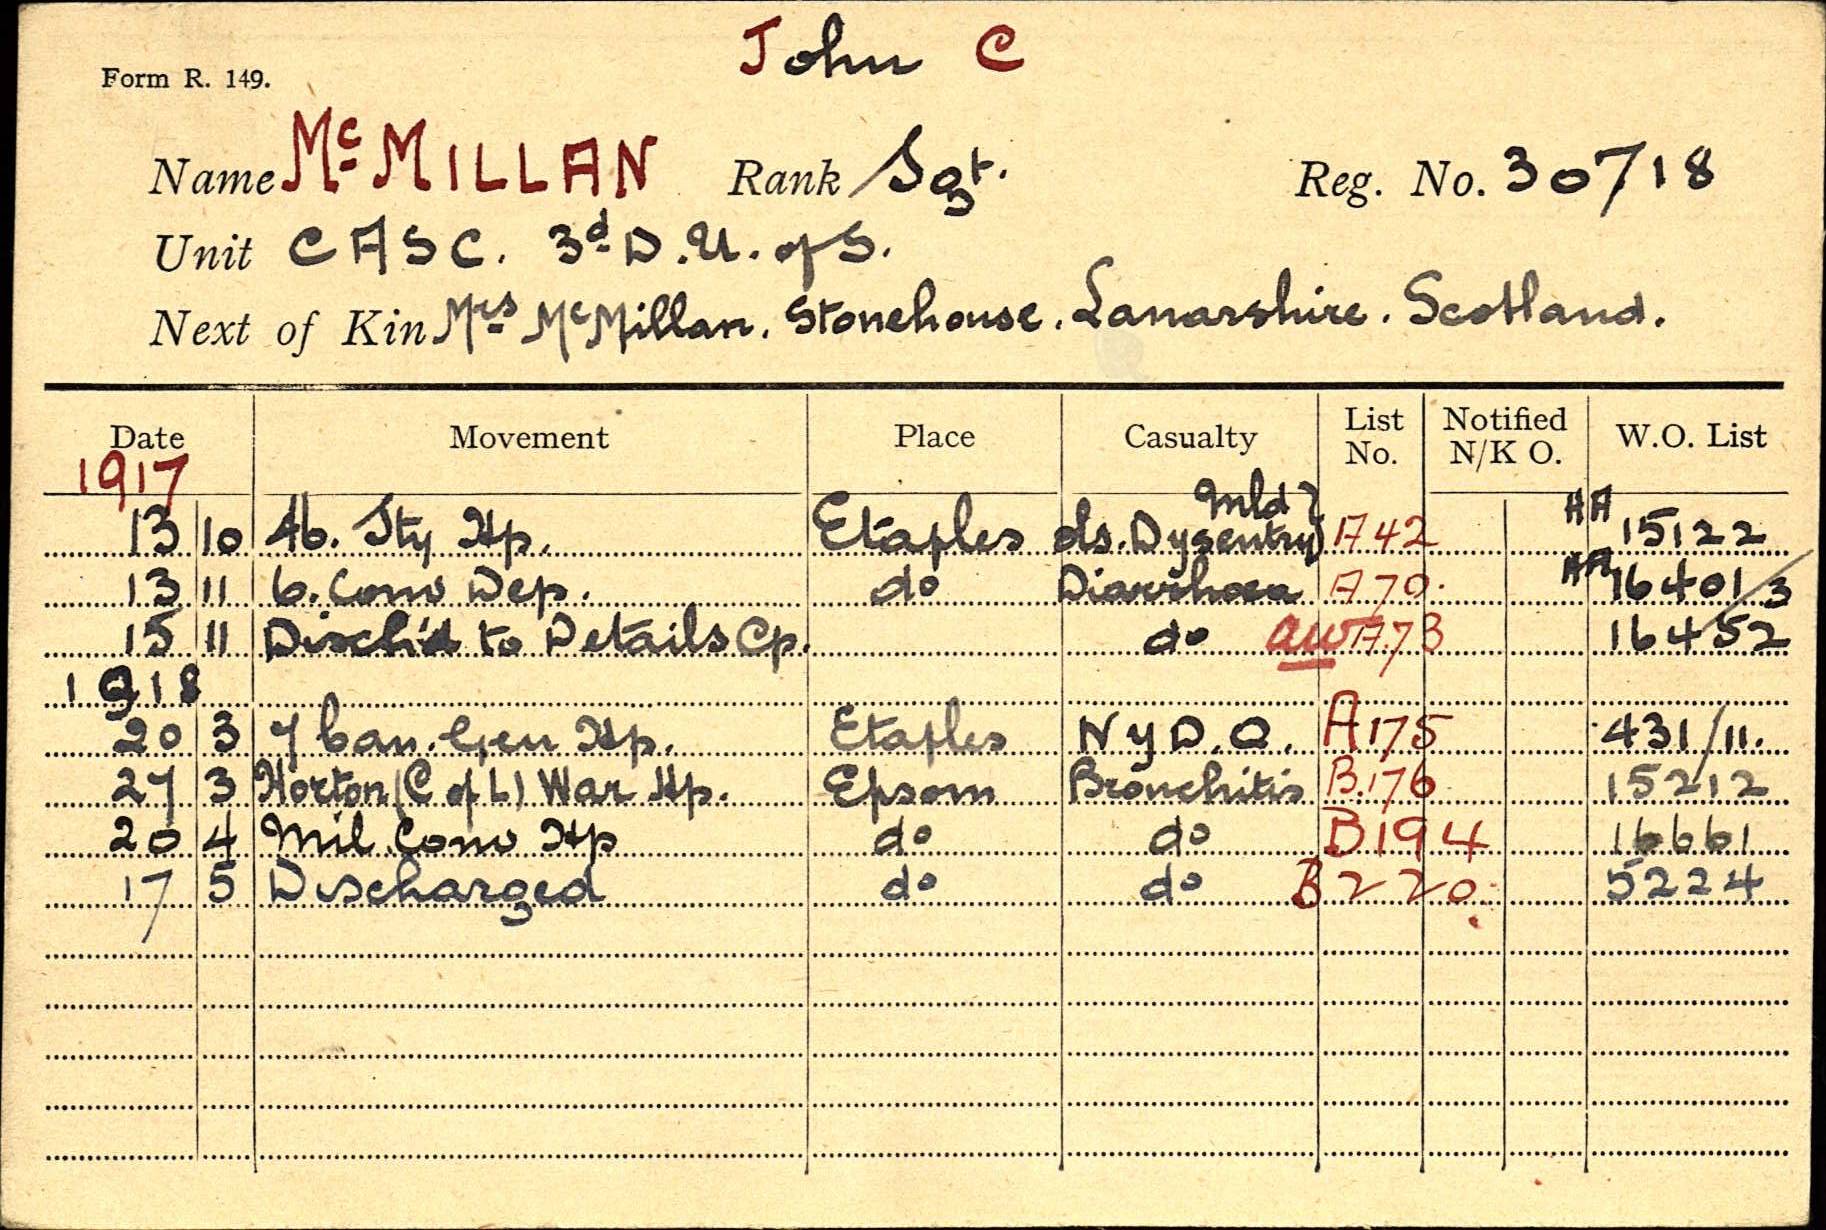 John C
Form R. 149.
Name McMILLAN Rank Sgt. Reg. No. 30718
Unit CASC. 3d D.U. of S.
Next of Kin Mrs McMillan. Stonehouse. Lanarshire. Scotland.
Date Movement Place Casualty List No. Notified N/K O. W.O. List
1917
13 10 46. Sty Hp. Etaples ds. Dysentry Mld A42 HA 15122
13 11 6. Conv Dep. do Diarrhoea A70. HA 16401/3
15 11 Disch'd to Details Cp. do aw A73 16452
1918
20 3 7 Can. Gen Hp. Etaples N Y D. O. A175 431/11.
27 3 Horton (C of L) War Hp. Epsom Bronchitis B.176 15212
20 4 Mil. Conv Hp do do B194 16661
17 5 Discharged do do B220. 5224